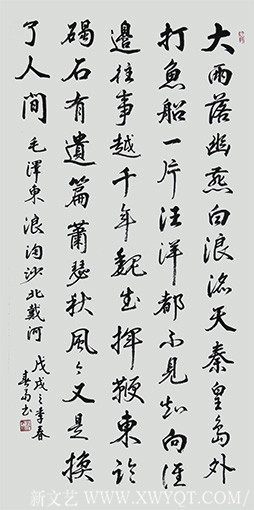 大雨落幽燕白浪滔天秦皇島外
打魚船一片汪洋都不見知向誰
邊往事越千年魏武揮鞭東臨
碣石有遺篇蕭瑟秋風今又是換
了人間
毛澤東浪淘沙北戴河
戊戌之季春
书
新文艺 WWW.XWYQT.COM/